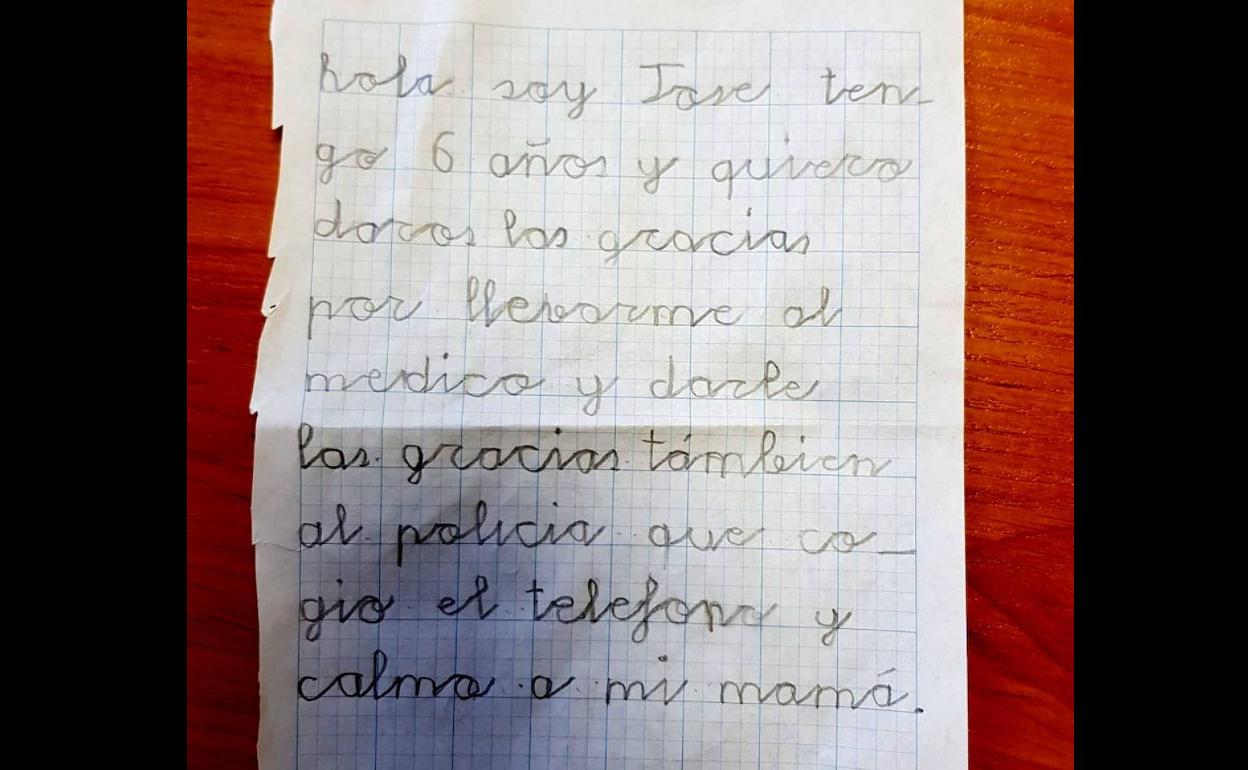 hola soy Jose ten-
go 6 años y quiero
daros las gracias
por llevarme al
medico y darle
las gracias támbien
al policia que co-
gio el telefono y
calmo a mi mamá.